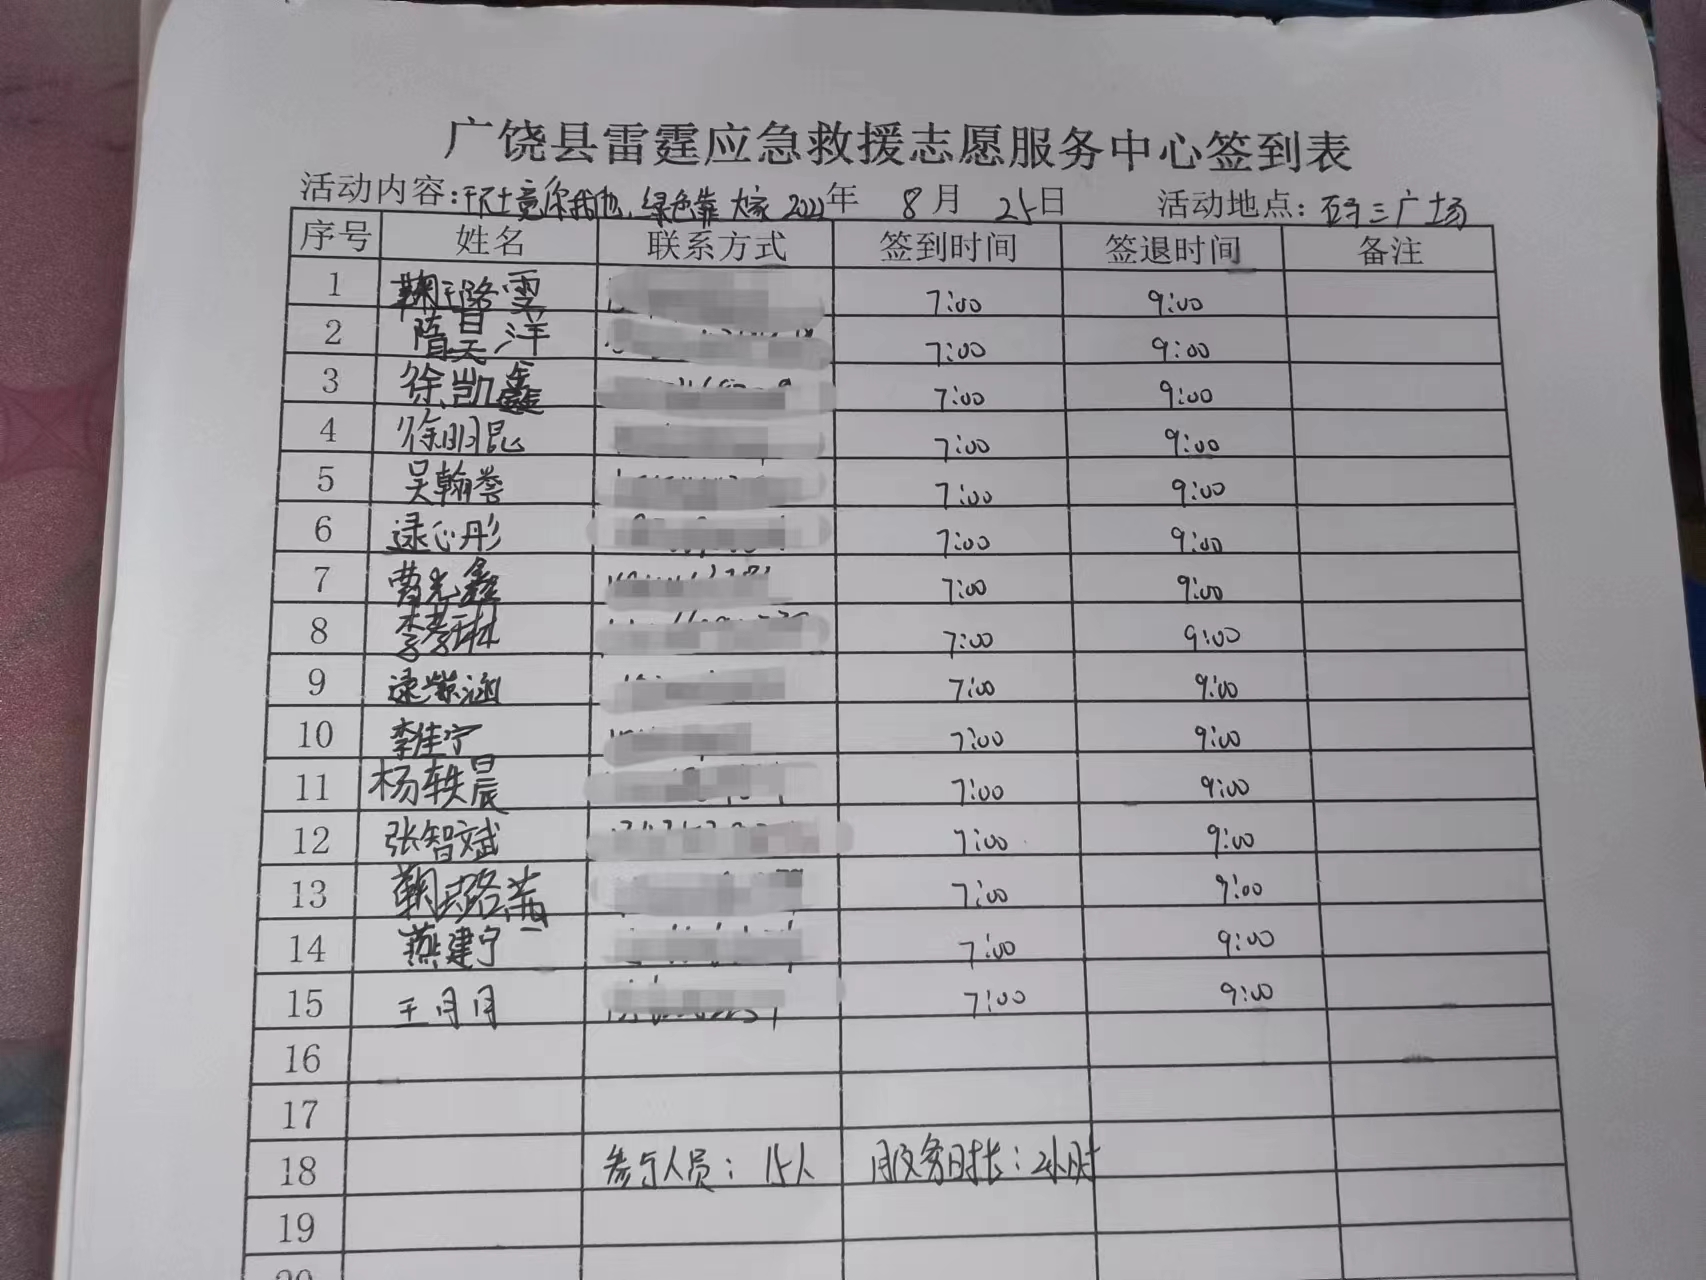 广饶县雷霆应急救援志愿服务中心签到表
活动内容:环境你我他,绿色靠大家 2022年 8月 25日 活动地点:孙三广场
序号 姓名 联系方式 签到时间 签退时间 备注
1 鞠璐雪 7:00 9:00
2 隋昊洋 7:00 9:00
3 徐凯鑫 7:00 9:00
4 徐明昆 7:00 9:00
5 吴翰誉 7:00 9:00
6 逯心彤 7:00 9:00
7 曹光鑫 7:00 9:00
8 李彦琳 7:00 9:00
9 逯紫涵 7:00 9:00
10 李佳宁 7:00 9:00
11 杨轶晨 7:00 9:00
12 张智斌 7:00 9:00
13 鞠璐茜 7:00 9:00
14 燕建宁 7:00 9:00
15 王月月 7:00 9:00
16
17
18 参与人员:15人 服务时长:2小时
19
20